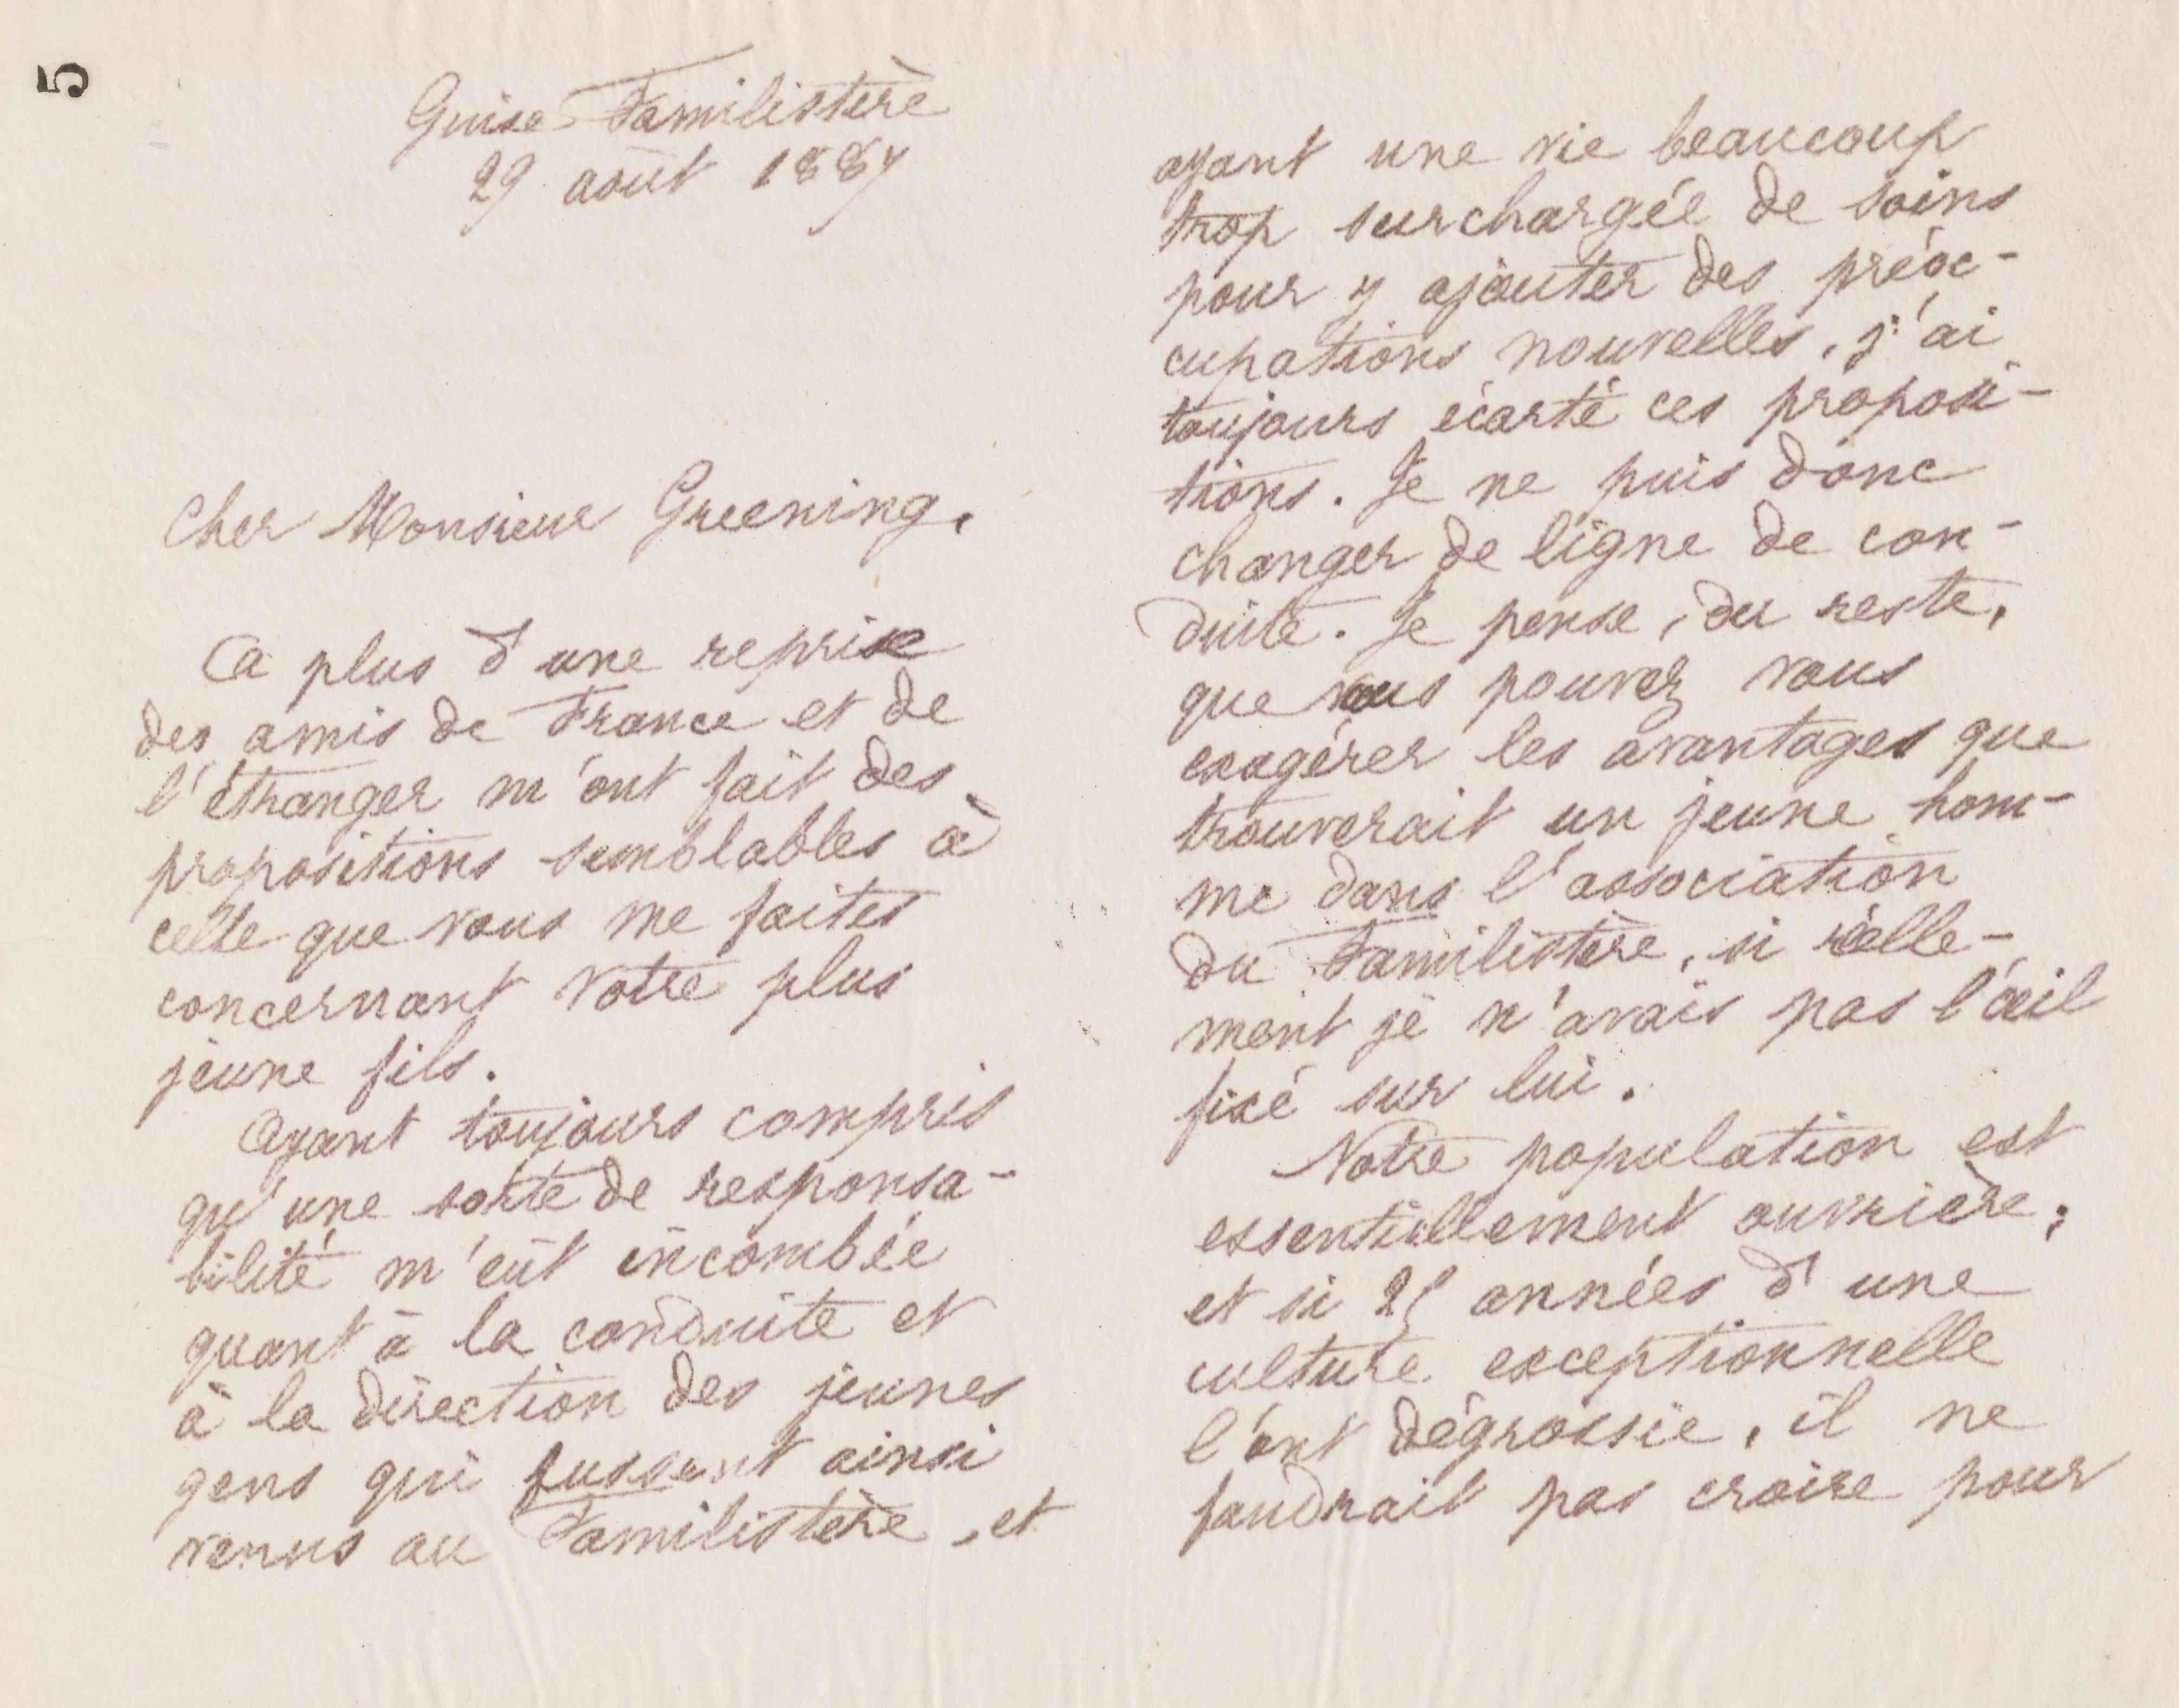 5
Guise Familistère
29 août 1887
Cher Monsieur Greening,
A plus d'une reprise
des amis de France et de
l'étranger m'ont fait des
propositions semblables à
celle que vous me faites
concernant votre plus
jeune fils.
Ayant toujours compris
qu'une sorte de responsa-
bilité m'eût incombée
quant à la conduite et
à la direction des jeunes
gens qui fussent ainsi
venus au Familistère, et
ayant une vie beaucoup
trop surchargée de soins
pour y ajouter des préoc-
cupations nouvelles, j'ai
toujours écarté ces proposi-
tions. Je ne puis donc
changer de ligne de con-
duite. Je pense, du reste,
que vous pouvez vous
exagérer les avantages que
trouverait un jeune hom-
me dans l'association
du Familistère, si réelle-
ment je n'avais pas l'œil
fixé sur lui.
Notre population est
essentiellement ouvrière;
et si 25 années d'une
culture exceptionnelle
l'ont dégrossie, il ne
faudrait pas croire pour